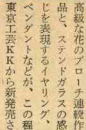 高級な花のブローチ連続作
品と、ステンドガラスの感
じを表現するイヤリング、
ペンダントなどが、この程
東京工芸KKから新発売さ